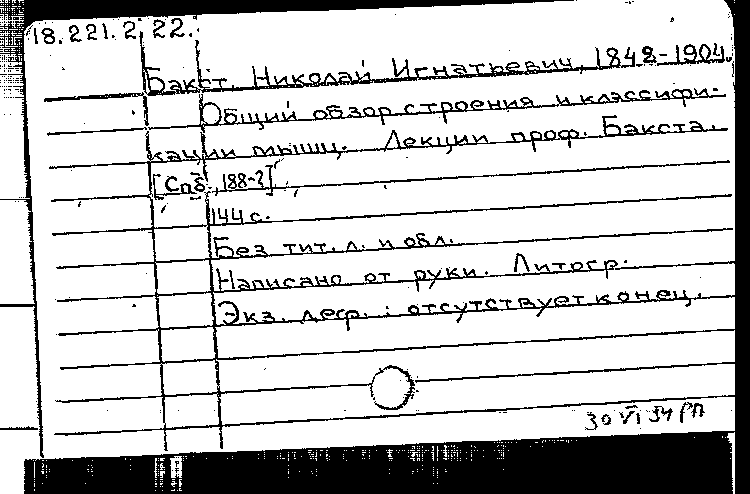 18.221.2.22.
Бакст, Николай Игнатьевич, 1848-1904.
Общий обзор строения и классифи-
кации мышц. Лекции проф. Бакста.
[Спб., 188-?]
144 с.
Без тит. л. и обл.
Написано от руки. Литогр.
Экз. деф.: отсутствует конец.
30 VI 54